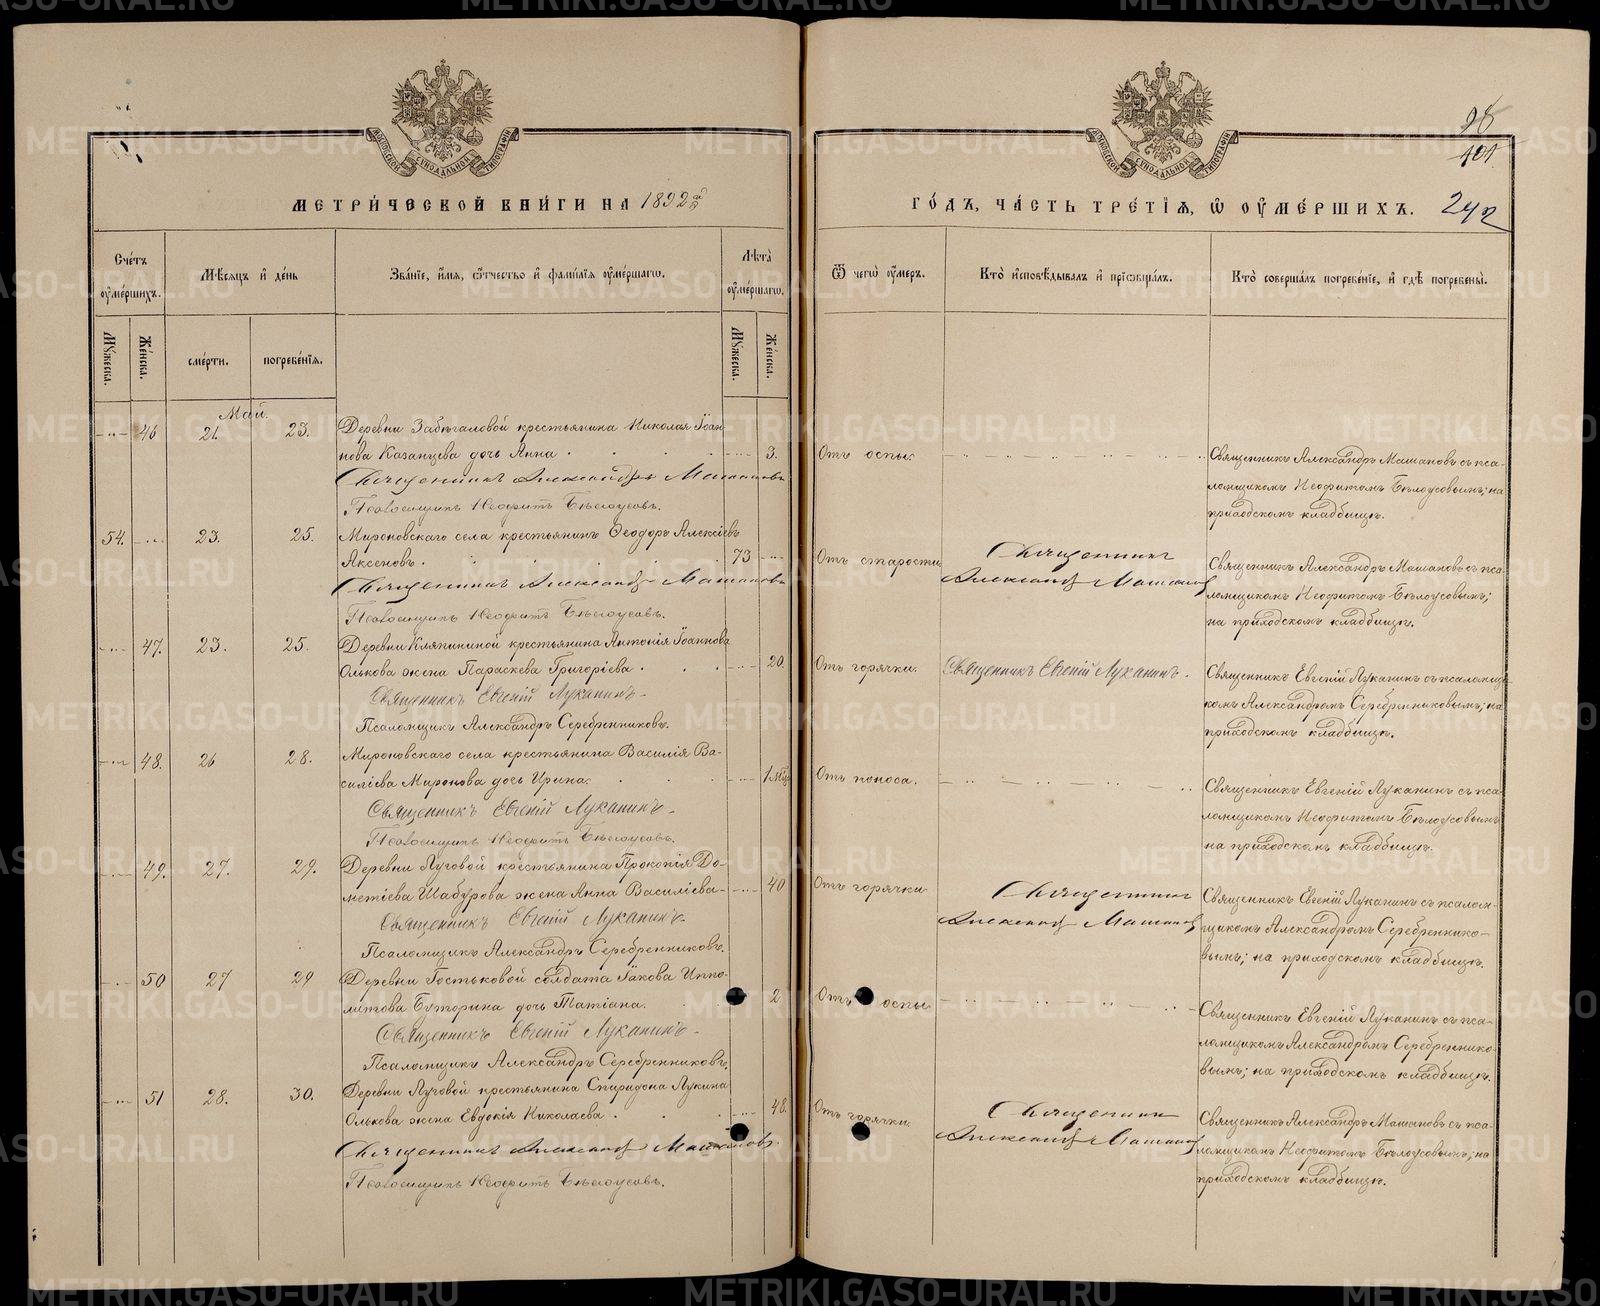 МЕТРИ́ЧЕСКОЙ КНИ́ГИ НА 1892й
ГО́ДЪ, ЧА́СТЬ ТРЕ́ТІЯ, Ѿ ОУМЕ́РШИХЪ. 242
98
101
Сче́тъ оуме́ршихъ.
Мѣ́сяцъ и де́нь
Зва́ніе, и́мя, ѻ҆́тчество и фами́лія оуме́ршагѡ.
Лѣ́та оуме́ршагѡ.
Ѿ чегѡ̀ оу́меръ.
Кто̀ исповѣ́дывалъ и приѡбща́лъ.
Кто̀ соверша́лъ погребе́ніе, и гдѣ̀ погребены̀.
Му́жеска.
Же́нска.
сме́рти.
погребе́нія.
Му́жеска.
Же́нска.
Май.
46 21. 23. Деревни Забѣгаловой крестьянина Николая Іоан-
нова Казанцева дочь Анна 3. Отъ оспы.
Священникъ Александръ Машановъ
Псаломщикъ Неофитъ Бѣлоусовъ.
Священникъ Александръ Машановъ съ пса-
ломщикомъ Неофитомъ Бѣлоусовымъ; на
приходскомъ кладбищѣ.
54. 23. 25. Мироновскаго села крестьянинъ Ѳеодоръ Алексіевъ
Аксеновъ. 73 Отъ старости
Священникъ Александръ Машановъ
Псаломщикъ Неофитъ Бѣлоусовъ.
Священникъ
Александръ Машановъ
Священникъ Александръ Машановъ съ пса-
ломщикомъ Неофитомъ Бѣлоусовымъ;
на приходскомъ кладбищѣ.
47. 23. 25. Деревни Кляпининой крестьянина Антонія Іоаннова
Олькова жена Параскева Григоріева 20. Отъ горячки.
Священникъ Евгеній Луканинъ
Псаломщикъ Александръ Серебренниковъ.
Священникъ Евгеній Луканинъ.
Священникъ Евгеній Луканинъ съ псаломщи-
комъ Александромъ Серебренниковымъ; на
приходскомъ кладбищѣ.
48. 26 28. Мироновскаго села крестьянина Василія Ва-
силіева Миронова дочь Ирина 1 мѣс. Отъ поноса.
Священникъ Евгеній Луканинъ
Псаломщикъ Неофитъ Бѣлоусовъ.
Священникъ Евгеній Луканинъ съ пса-
ломщикомъ Неофитомъ Бѣлоусовымъ
на приходскомъ кладбищѣ.
49. 27. 29. Деревни Луговой крестьянина Прокопія До-
метіева Шабурова жена Анна Василіева 40 Отъ горячки
Священникъ Евгеній Луканинъ.
Псаломщикъ Александръ Серебренниковъ.
Священникъ
Александръ Машановъ
Священникъ Евгеній Луканинъ съ псалом-
щикомъ Александромъ Серебреннико-
вымъ; на приходскомъ кладбищѣ.
50 27 29 Деревни Гостьковой солдата Іакова Иппо-
литова Буторина дочь Татіана. 2 Отъ оспы
Священникъ Евгеній Луканинъ
Псаломщикъ Александръ Серебренниковъ.
Священникъ Евгеній Луканинъ съ пса-
ломщикомъ Александромъ Серебреннико-
вымъ; на приходскомъ кладбищѣ.
51 28. 30. Деревни Луговой крестьянина Спиридона Лукина
Олькова жена Евдокія Николаева 48. Отъ горячки.
Священникъ Александръ Машановъ.
Псаломщикъ Неофитъ Бѣлоусовъ.
Священникъ
Александръ Машановъ
Священникъ Александръ Машановъ съ пса-
ломщикомъ Неофитомъ Бѣлоусовымъ; на
приходскомъ кладбищѣ.
METRIKI.GASO-URAL.RU